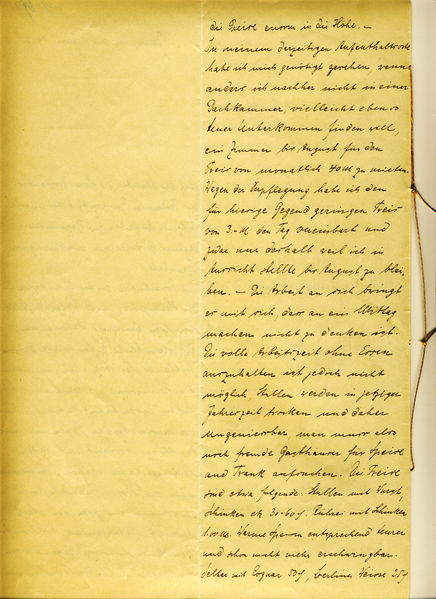 die Preise enorm in die Höhe. —
In meinem derzeitigen Aufenthaltsorte
habe ich mich genötigt gesehen wenn
anders ich nachher nicht in einer
Dachkammer, vielleicht eben so
teuer Unterkommen finden will,
ein Zimmer bis August für den
Preis von monatlich 40 M zu mieten.
Wegen der Verpflegung habe ich den
für hiesige Gegend geringen Preis
von 3.- M den Tag vereinbart und
zwar nur deshalb weil ich in
Aussicht stellte bis August zu blei-
ben. — Die Arbeit an sich bringt
es mit sich, dass an ein Mittag
machen nicht zu denken ist.
Die volle Arbeitszeit ohne Essen
auszuhalten ist jedoch nicht
möglich. Stullen werden in jetziger
Jahreszeit trocken und daher
ungeniessbar man muss also
noch fremde Gasthäuser für Speise
und Trank aufsuchen. Die Preise
sind etwa folgende. Stullen mit Wurst,
Schinken etc 30-60 Rührei mit Schinken
Warme Speisen entsprechend teurer
und schon nicht mehr erschwingbar.
Selter mit Cognac 50 , Berliner Weisse 25